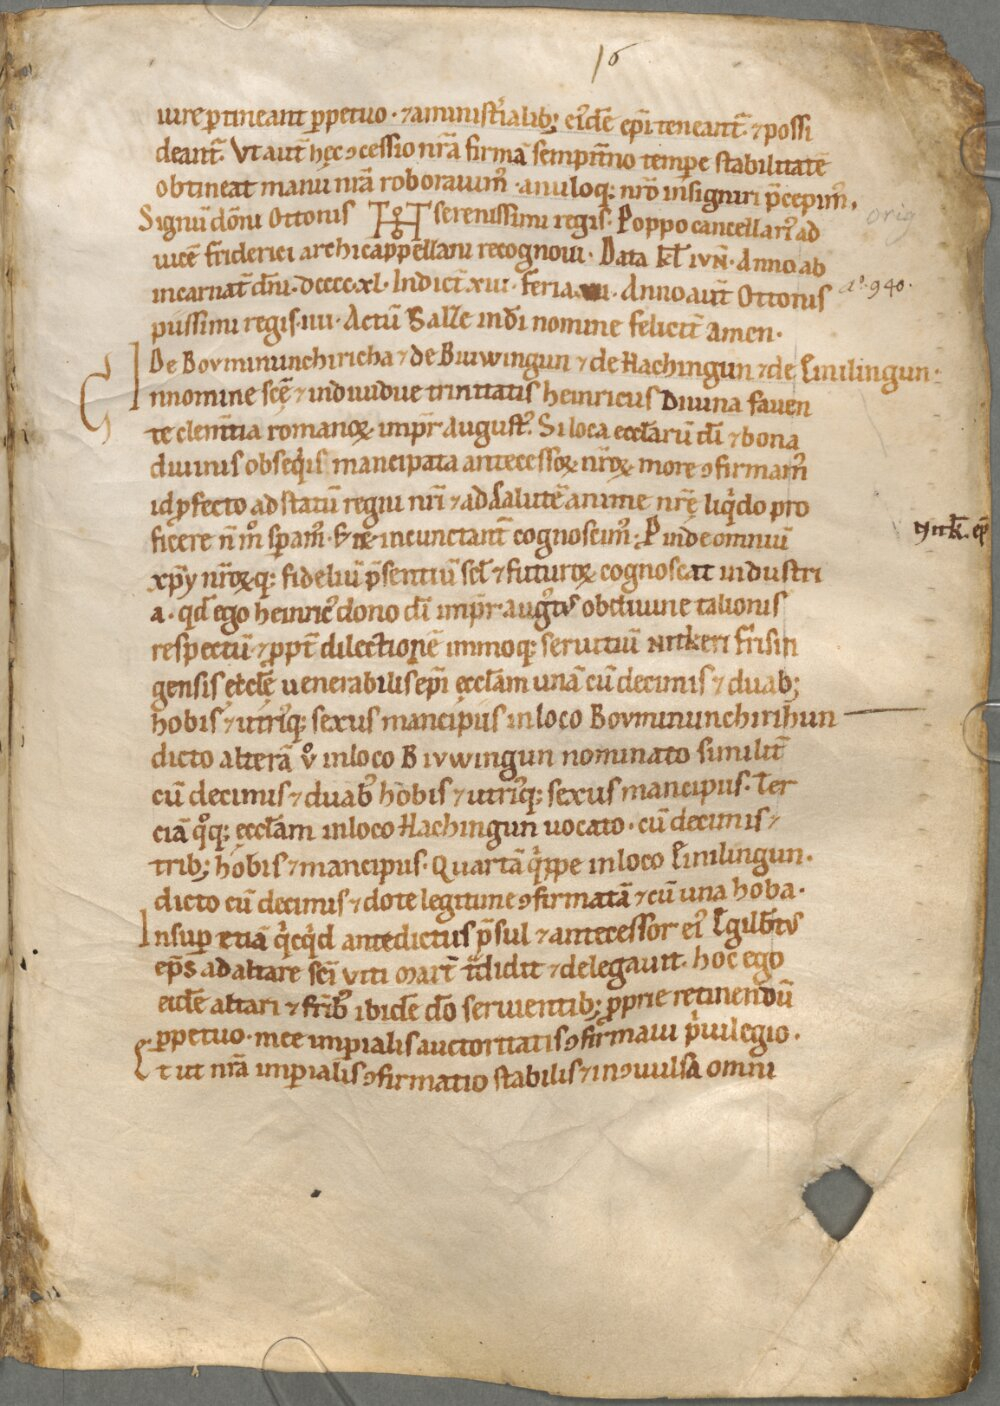 16
iure ꝑtineant ꝑpetuo · ⁊ aministˀialib; eiˀdē ep̄i teneant̄ · ⁊ possi
deant̄ · Vt aut̄ hęc ꝯcessio nr̄a firmā sempit̄no tempꝑe stabilitatē
obtineat manu nr̄a roborauimˀ · anuloq; nr̄o insigniri p̄cepimˀ.
Signū dōni Ottonis serenissimi regis · Poppo cancellariˀ ad
orig
uicē friderici archicappellani recognoui · Data kl̄ ivn̄ · Anno ab
incarnat̄ dn̄i · dcccc · xl · Indict̄ xiii · feria vii · Anno aut̄ Ottonis
aº · 940 ·
piissimi regis · iiii · Actū Salle in dī nomine felicit̄ amen ·
De Bovminunchiricha ⁊ de Biuwingun ⁊ de Hachingun ⁊ de Liulingun ·
Innomine scę̄ ⁊ indiuidue trinitatis heinricus Diuina fauen
te clem̄tia romanoꝝ · impr̄ Augustˀ · Si loca eccl̄arū dī ⁊ bona
diuinis obseqͥis mancipata antecessoꝝ nr̄oꝝ more ꝯfirmamˀ
id ꝓfecto ad statū regni nr̄i ⁊ ad salutē anime nr̄ę liqͥdo pro
ficere n̄ mº spamˀ · incunctant̄ cognoscimˀ · Pinde omniū
Nitk̄. ep̄
xp̄i nr̄oꝝq; fideliū p̄sentiū scl̄ ⁊ futuroꝝ cognoscat industri
a · qd̄ ego heinricˀ dono dī impr̄ augˀtvs ob diuine talionis
respectū · ⁊ ꝓpt̄ dilectionē immoq; seruitiū nitkeri frisin
gensis venerabilis ep̄i ęccl̄am unā cū decimis ⁊ duab;
hobis ⁊ utriˀq; sexus mancipiis in loco Bovmininchirihun
dicto alterā vº in loco Bivwingun nominato similit̄
cū decimis ⁊ duabˀ hobis ⁊ utriˀq; sexus mancipiis · Ter
ciā qºq; ęccl̄am in loco Hachingun uocato · cū decimis ⁊
trib; hobis ⁊ mancipiis · Quartā qͥppe in loco Liulingun ·
dicto cū decimis ⁊ dote legitime ꝯfirmatā ⁊ cū una hoba ·
Insuꝑ etiā qͥcqͥd antedictus p̄sul ⁊ antecessor eiˀ Egilb̄tvs
ep̄s ad altare sc̄i viti mart̄ t̄didit ⁊ delegauit · hoc ego
eidē altari ⁊ fr̄ibˀ ibidē dō seruientib; ꝓprie retinendū
ꝑpetuo · mee imꝑialis auctoritatis ꝯfirmaui pͥuilegio ·
Et ut nr̄a imꝑialis ꝯfirmatio stabilis ⁊ inꝯuulsa omni